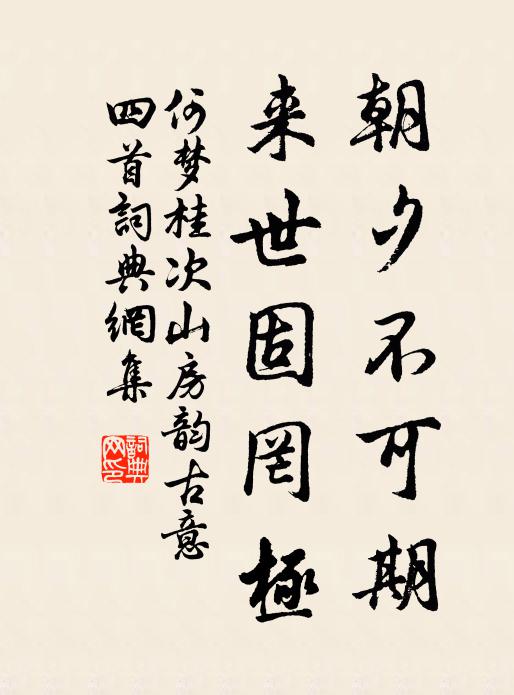 朝夕不可期
来世固罔極
何梦桂次山房韵古意
四首詞典網集
詞典网印